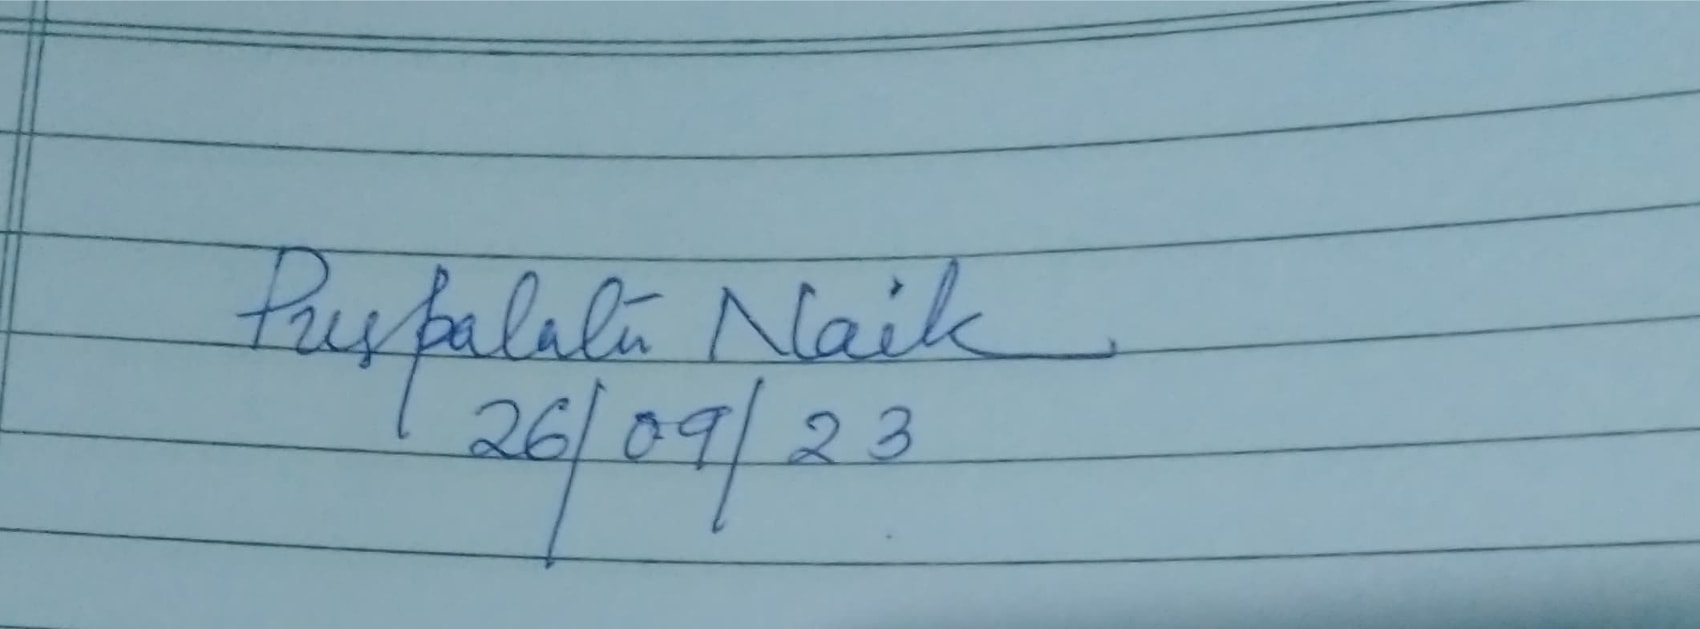 Puspalata Naik
26/09/23